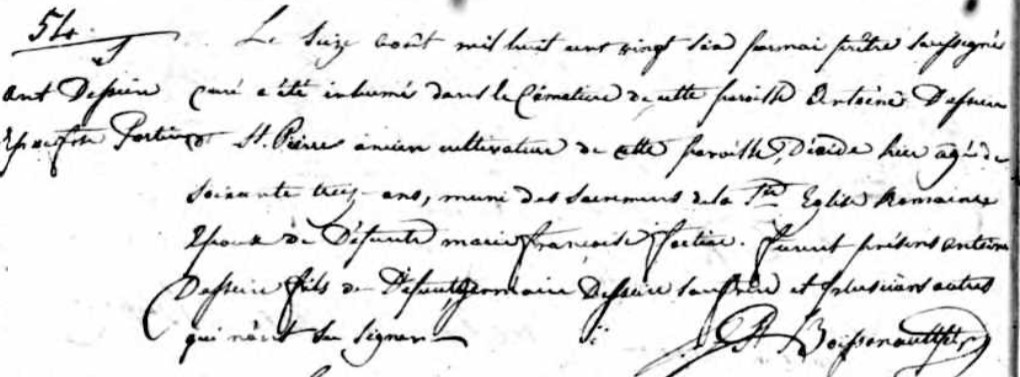 54.
Le seize août mil huit cent vingt six par moi prêtre soussigné
Ant Dessein curé a été inhumé dans le Cimetière de cette paroisse Antoine Dessein
Epx de fse Fortier St. Pierre ancien cultivateur de cette paroisse, Décédé hier agé de
soixante treize ans, muni des sacremens de la Ste Eglise Romaine
Epoux de Défunte marie françoise fortier. furent présens antoine
Dessein fils du Défunt, germain Dessein son frère et plusieurs autres
qui n'ont su signer
Boissonnault ptre